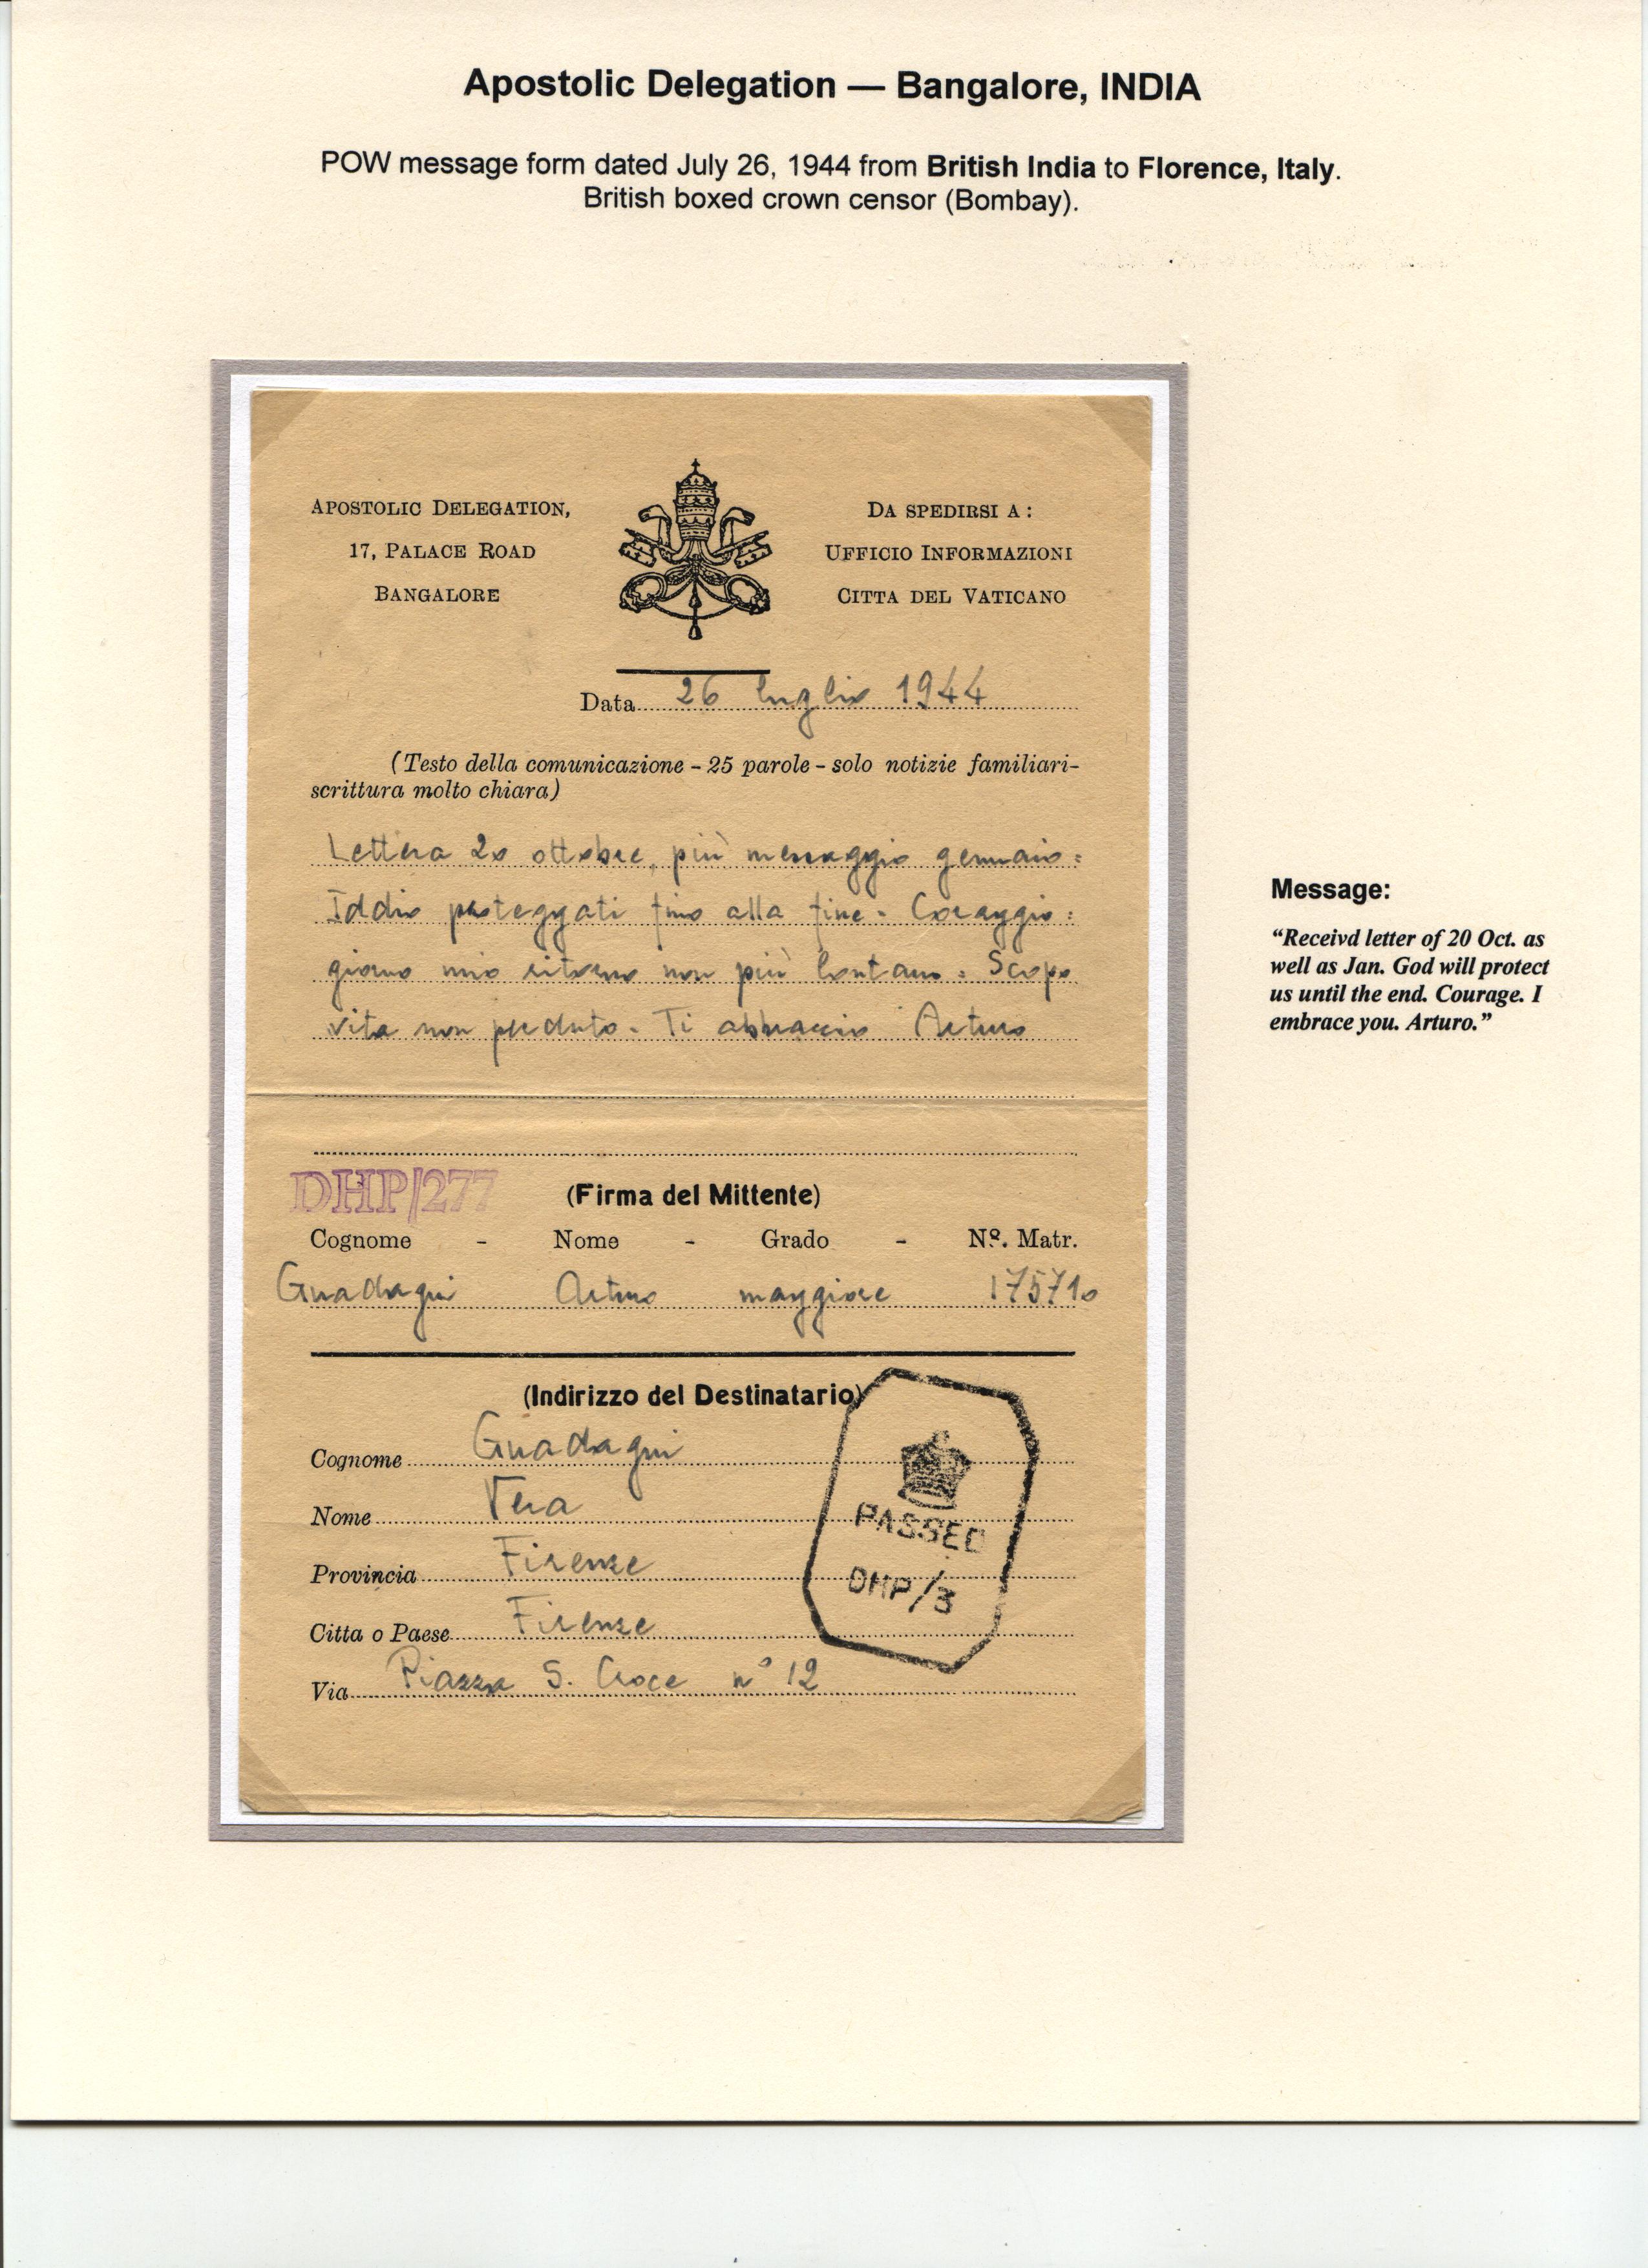 Apostolic Delegation — Bangalore, INDIA
POW message form dated July 26, 1944 from British India to Florence, Italy.
British boxed crown censor (Bombay).
APOSTOLIC DELEGATION,
17, PALACE ROAD
BANGALORE
DA SPEDIRSI A :
UFFICIO INFORMAZIONI
CITTA DEL VATICANO
Data 26 luglio 1944
(Testo della comunicazione - 25 parole - solo notizie familiari-
scrittura molto chiara)
Lettera 20 ottobre, più messaggio gennaio:
Iddio proteggati fino alla fine - Coraggio:
giorno mio ritorno non più lontano: Scopo
vita non perduto. Ti abbraccio Arturo
DHP/277
(Firma del Mittente)
Cognome - Nome - Grado - Nº. Matr.
Guadagni Arturo maggiore 175710
(Indirizzo del Destinatario)
Cognome Guadagni
Nome Vera
Provincia Firenze
Citta o Paese Firenze
Via Piazza S. Croce n° 12
PASSED
DHP/3
Message:
“Receivd letter of 20 Oct. as
well as Jan. God will protect
us until the end. Courage. I
embrace you. Arturo.”